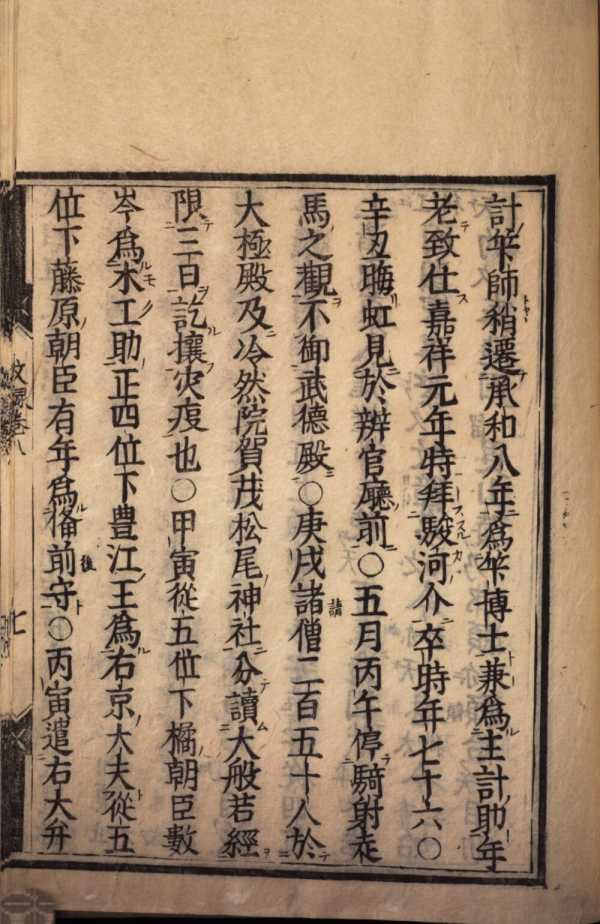 計筭師稍遷承和八年為筭博士兼為主計助年
老致仕嘉祥元年特拜駿河介卒時年七十六〇
辛丑晦虹見於辨官廳前〇五月丙午停騎射走
馬之觀不御武德殿〇庚戌諸僧二百五十人於
大極殿及冷然院賀茂松尾神社分讀大般若經
限三日訖攘灾疫也〇甲寅從五位下橘朝臣數
岑為木工助正四位下豊江王為右京大夫從五
位下藤原朝臣有年為俻前守〇丙寅遣右大弁
後
諸
卷八
七